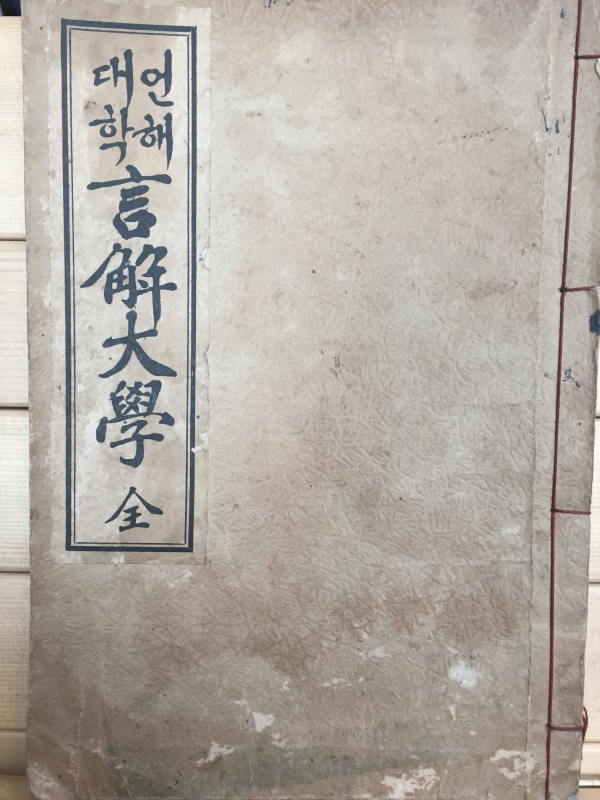 언해
대학
言解大學 全